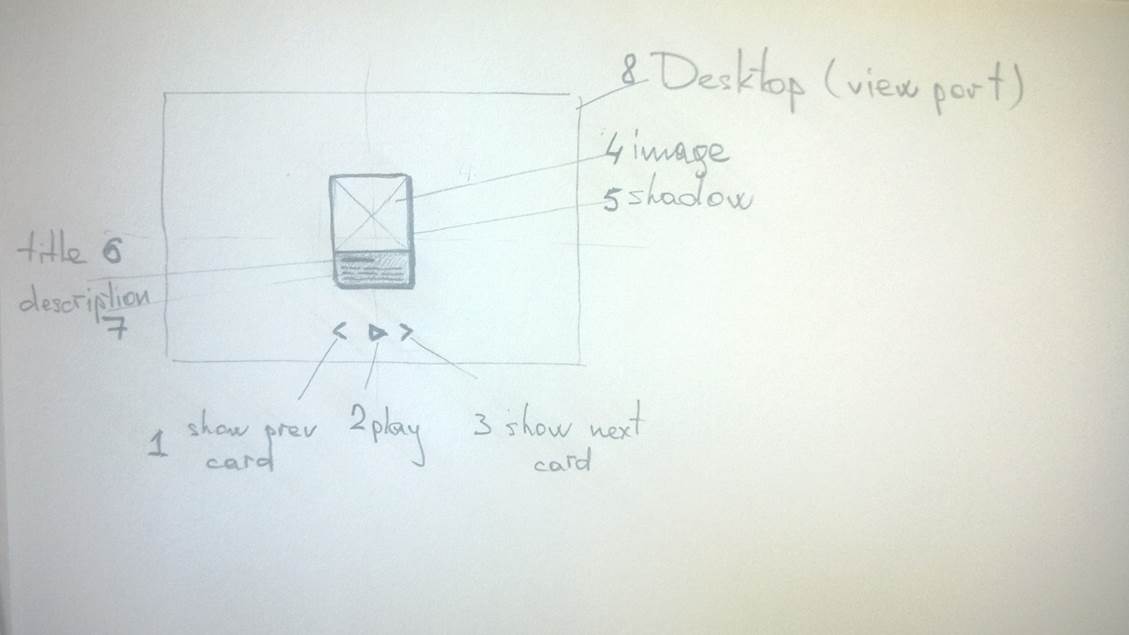 8 Desktop (view port)
4 image
5 shadow
title 6
description
7
< ▷ >
1 show prev
card
2 play
3 show next
card